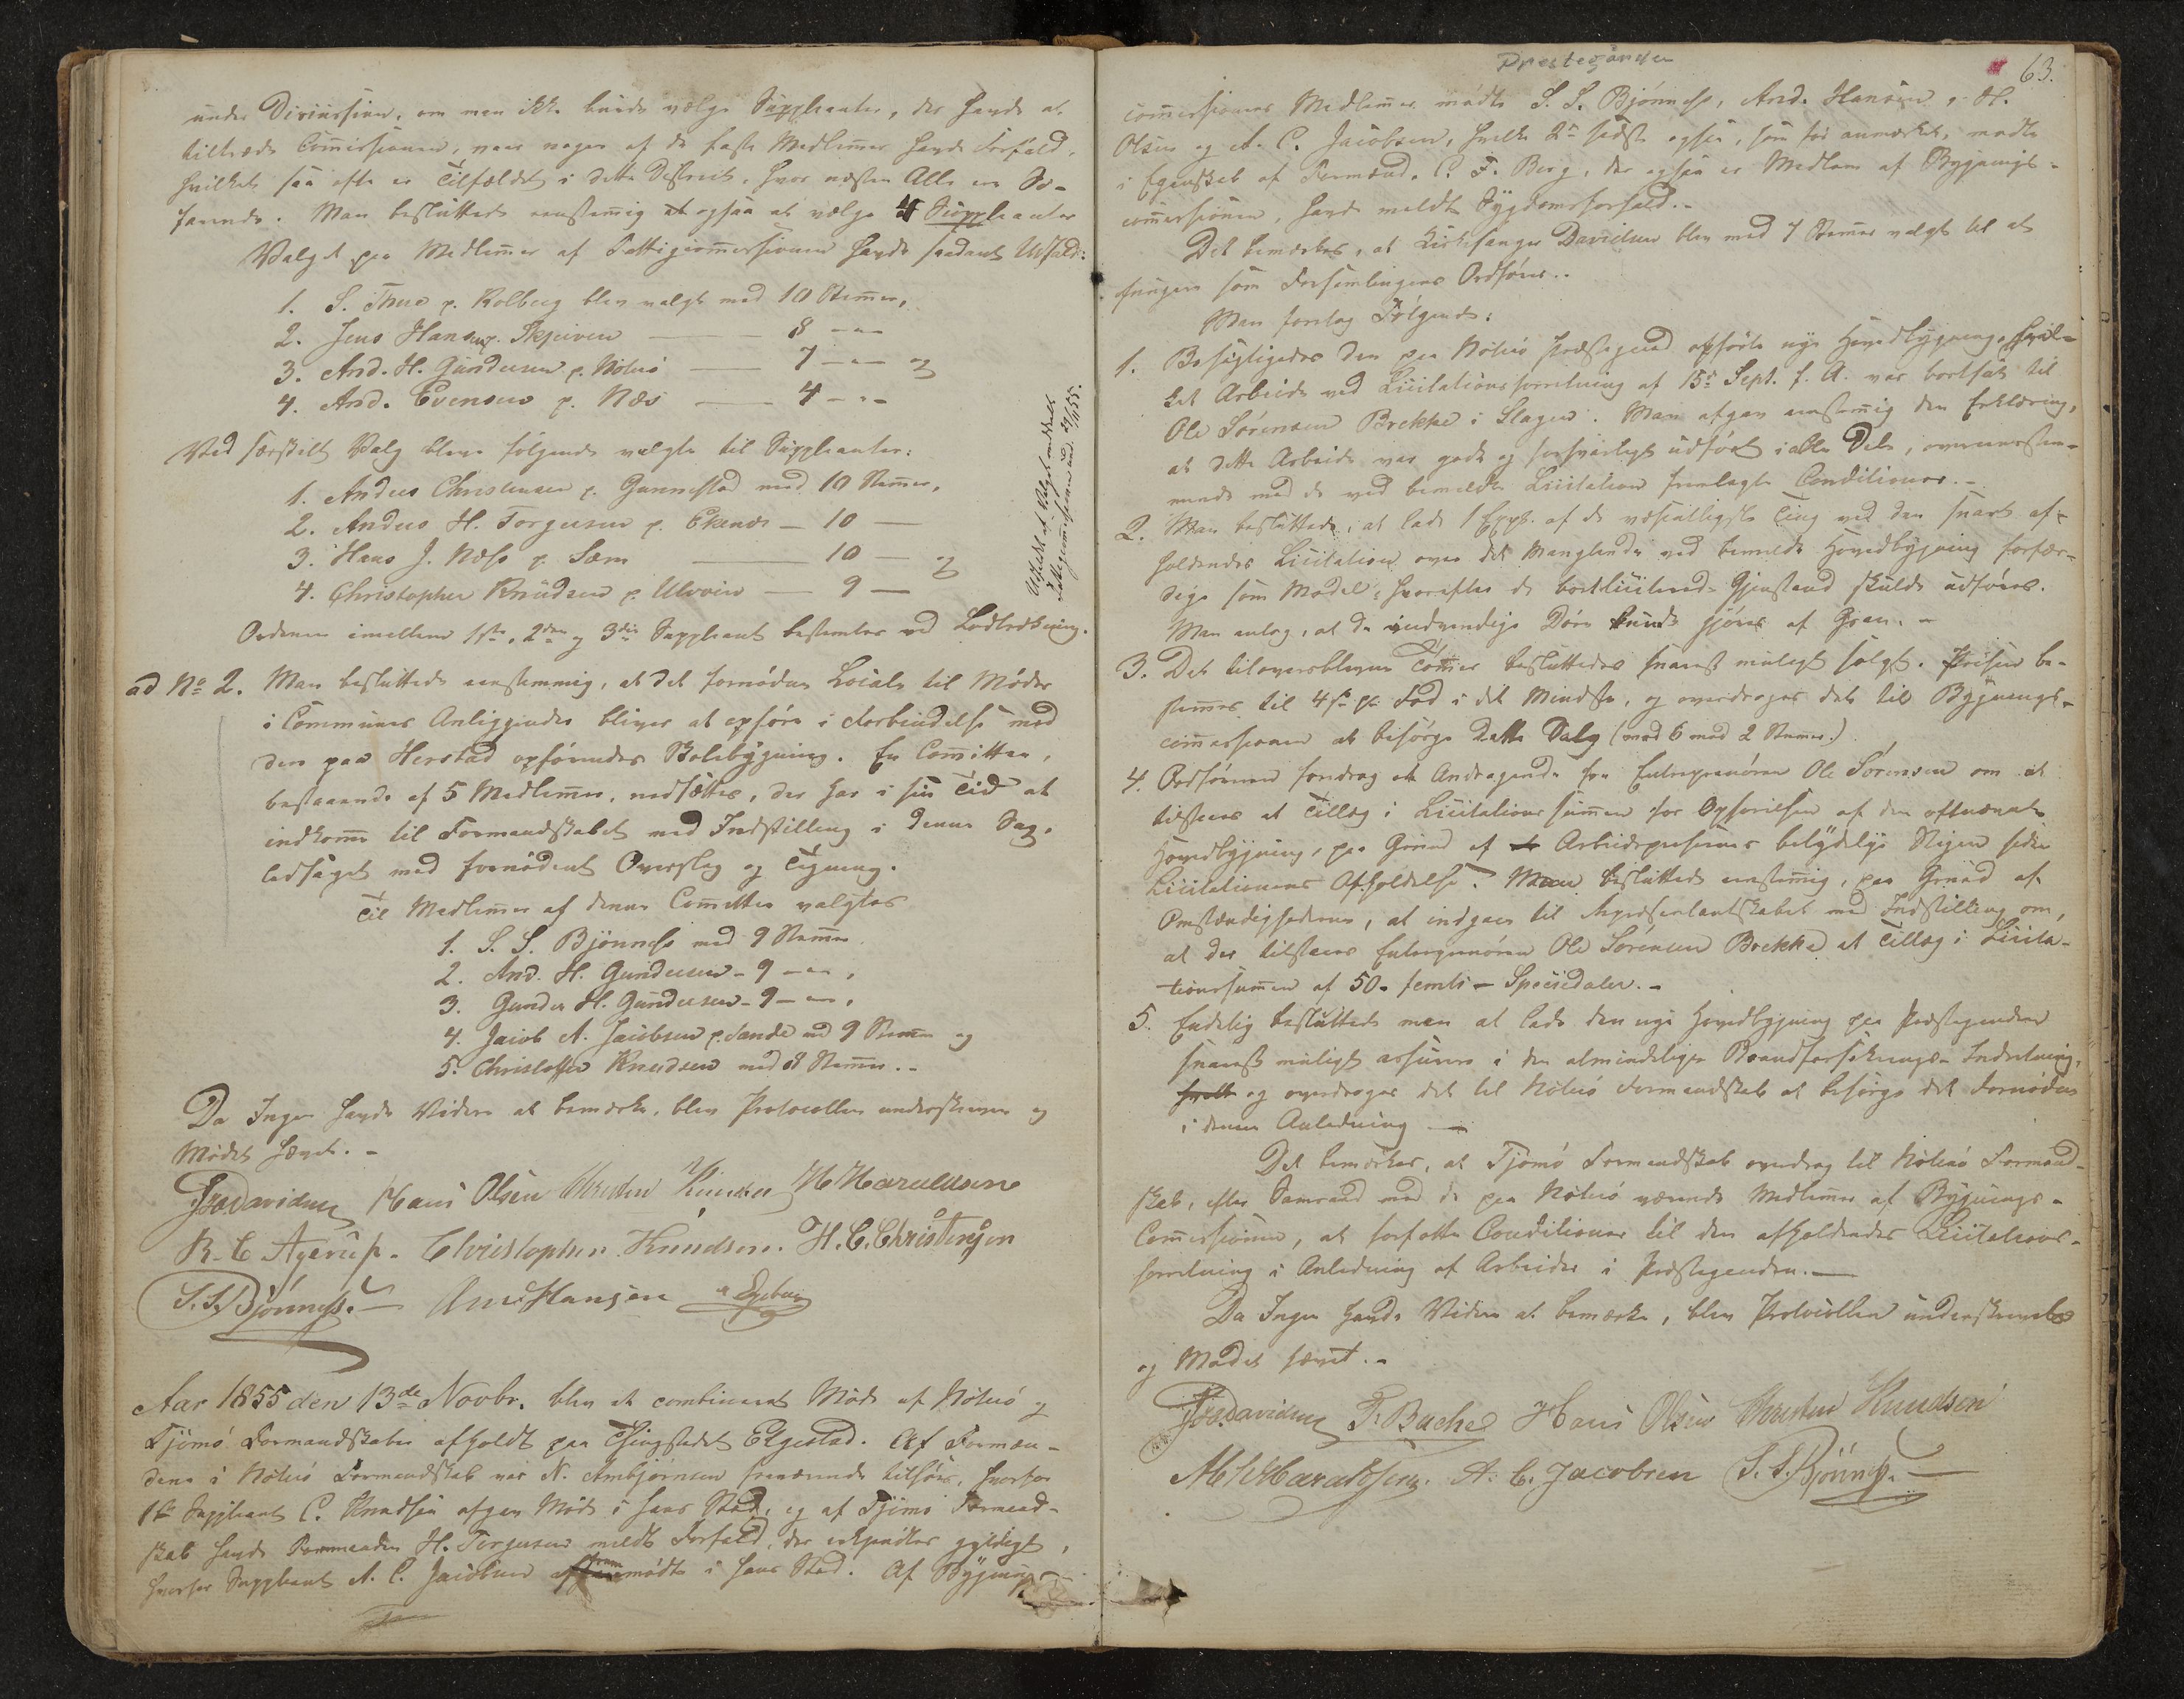 under Discussion, om man ikke burde vælge Suppleanter, der havde at
tiltræde Commissionen, naar nogen af de faste Medlemmer havde Forfald,
hvilket saa ofte er Tilfældet i dette District, hvor næsten Alle ere Sø-
farende. Man besluttede eenstemmig at ogsaa at vælge 4 Suppleanter
Valget paa Medlemmer af Fattigcommissionen havde saadant Udfald:
1. S. Thue p. Kolberg blev valgt med 10 Stemmer,
2. Jens Hansen p. Skjerven — 8 — " —
3. And. H. Gundersen p. Nøterø — 7 — " — og
4. And. Evensen p. Næs — 4 — " —
Ved særskilt Valg bleve følgende valgte til Suppleanter:
1. Anders Christensen p. Gunnestad med 10 Stemmer,
2. Anders H. Torgersen p. Ekenæs — 10 —
3. Hans J. Næss p. Sæm — 10 — og
4. Christopher Knudsen p. Ulvøen — 9 —
Ordenen imellem 1ste, 2den og 3die Suppleant bestemtes ved Lodtrækning.
Udskrift af Valget meddeelt
Fattigcommissionen
ad No 2. Man besluttede eenstemmig, at det fornødne Locale til Møder
i Communens Anliggender bliver at opføre i Forbindelse med
den paa Herstad opførendes Skolebygning. En Committee,
bestaaende af 5 Medlemmer, nedsættes, der har i sin Tid at
indkomme til Formandskabet med Indstilling i denne Sag,
ledsaget med fornødent Overslag og Tegning.
Til Medlemmer af denne Committee valgtes
1. S. S. Bjønness med 9 Stemmer
2. And. H. Gundersen - 9 — " — ,
3. Gunder H. Gundersen - 9 — " — ,
4. Jacob A. Jacobsen p. Sande med 9 Stemmer og
5. Christoffer Knudsen med 8 Stemmer. -
Da Ingen havde Videre at bemærke, blev Protocollen underskreven og
Mødet hævet. -
Fr. Davidsen Hans Olsen Christen Knudsen H Haraldsen
R. C Agerup. Christopher Knudsen. H. C. Christensen
S. S. Bjønness. And. Hansen
Aar 1855 den 13de Novbr. blev et combineret Møde af Nøterø og
Tjømø Formandskaber afholdt paa Thingstedet Elgestad. Af Formæn-
dene i Nøterø Formandskab var N. Ambjørnsen fraværende tilsøes, hvorfor
1ste Suppleant C. Knudsen afgav Møde i hans Sted, og af Tjømø Formand-
skab havde Formanden H. Torgersen meldt Forfald, der erkjendtes gyldigt,
hvorfor Suppleant A. C. Jacobsen fremmødte i hans Sted. Af Bygnings-
Prestegården
63.
commissionens Medlemmer mødte S. S. Bjønness, And. Hansen, H.
Olsen og A. C. Jacobsen, hvilke 2de sidste ogsaa, som før anmærket, mødte
i Egenskab af Formænd. C. F. Berg, der ogsaa er Medlem af Bygnings-
commissionen, havde meldt Sygdomsforfald. -
Det bemærkes, at Kirkesanger Davidsen blev med 7 Stemmer valgt til at
fungere som Forsamlingens Ordfører. -
Man foretog Følgende:
1. Besigtigedes den paa Nøterø Præstegaard opførte nye Hovedbygning, hvil-
ket Arbeide ved Licitationsforretning af 15de Sept. f. A. var bortsat til
Ole Sørensen Brekke i Slagen. Man afgav eenstemmig den Erklæring,
at dette Arbeide var godt og forsvarligt udført i alle Dele, overeensstem-
mende med de ved bemeldte Licitation fremlagte Conditioner. -
2. Man besluttede, at lade 1 Expl. af de væsentligste Ting ved den snart af-
holdendes Licitation over det Manglende ved bemeldte Hovedbygning forfær-
dige som Model, hvorefter de bortliciterende Gjenstande skulde udføres.
Man antog, at de indvendige Døre kunde gjøres af Gran. -
3. Det tiloversblevne Tømmer besluttedes snarest muligt solgt. Prisen be-
stemmes til 4 s pr Fod i det Mindste, og overdroges det til Bygnings-
commissionen at besørge dette Salg (med 6 mod 2 Stemmer.)
4. Ordføreren foredrog et Andragende fra Entreprenøren Ole Sørensen om at
tilstaaes et Tillæg i Licitationssummen for Opførelsen af den oftnævnte
Hovedbygning, paa Grund af Arbeidsprisernes betydelige Stigen siden
Licitationens Afholdelse. Man besluttede eenstemmig, paa Grund af
Omstændighederne, at indgaae til Repræsentantskabet med Indstilling om,
at der tilstaaes Entreprenøren Ole Sørensen Brekke et Tillæg i Licita-
tionssummen af 50 - femti - Speciedaler. -
5. Endelig besluttede man at lade den nye Hovedbygning paa Præstegaarden
snarest muligt assurere i den almindelige Brandforsikrings-Indretning,
og overdroges det til Nøterø Formandskab at besørge det Fornødne
i denne Anledning. —
Det bemærkes, at Tjømø Formandskab overdrog til Nøterø Formand-
skab, efter Samraad med de paa Nøterø værende Medlemmer af Bygnings-
Commissionen, at forfatte Conditioner til den afholdendes Licitations-
forretning i Anledning af Arbeider i Præstegaarden. —
Da Ingen havde Videre at bemærke, blev Protocollen underskrevet
og Mødet hævet. -
Fr. Davidsen F. Bache Hans Olsen Christen Knudsen
M H Haraldsen. A. C. Jacobsen S. S. Bjønness. —